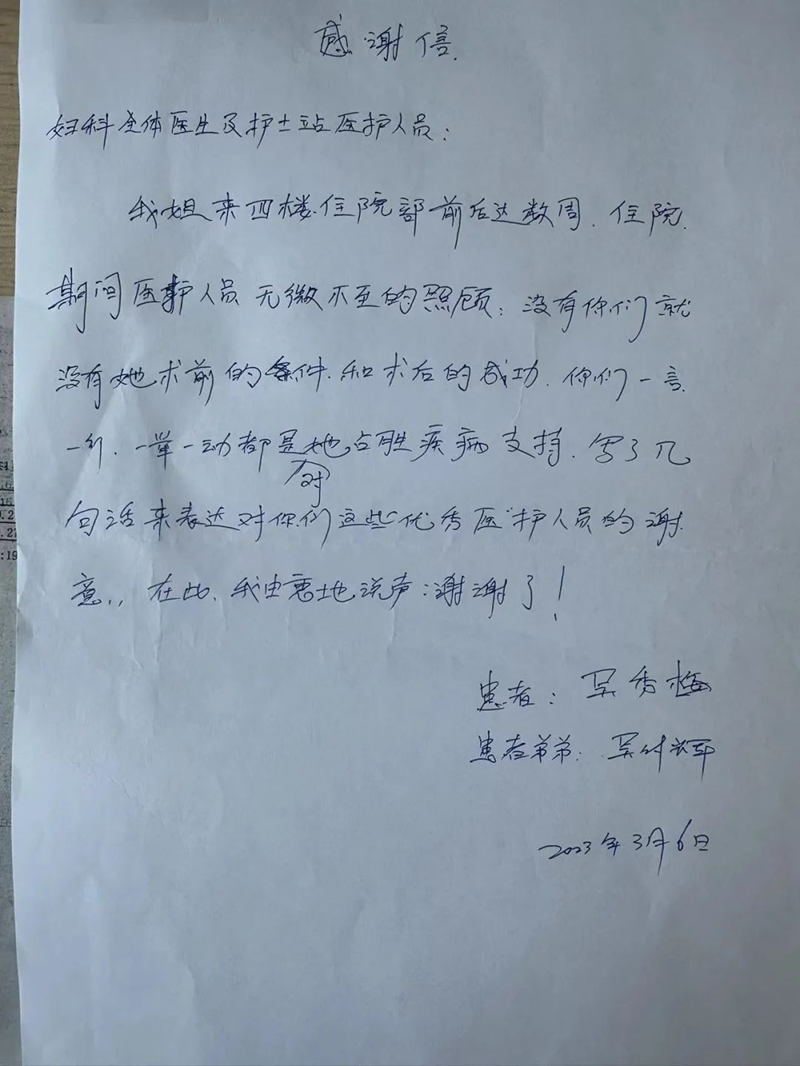 感谢信
妇科全体医生及护士站医护人员：
我姐来四楼住院部前后达数周．住院
期间医护人员无微不至的照顾；没有你们就
没有她术前的条件．和术后的成功．你们一言
一行．一举一动都是她占胜疾病支持．写了几
对
句话来表达对你们这些优秀医护人员的谢
意，．在此．我由衷地说声：谢谢了！
患者：吴秀梅
患者弟弟：吴辉
2023年3月6日